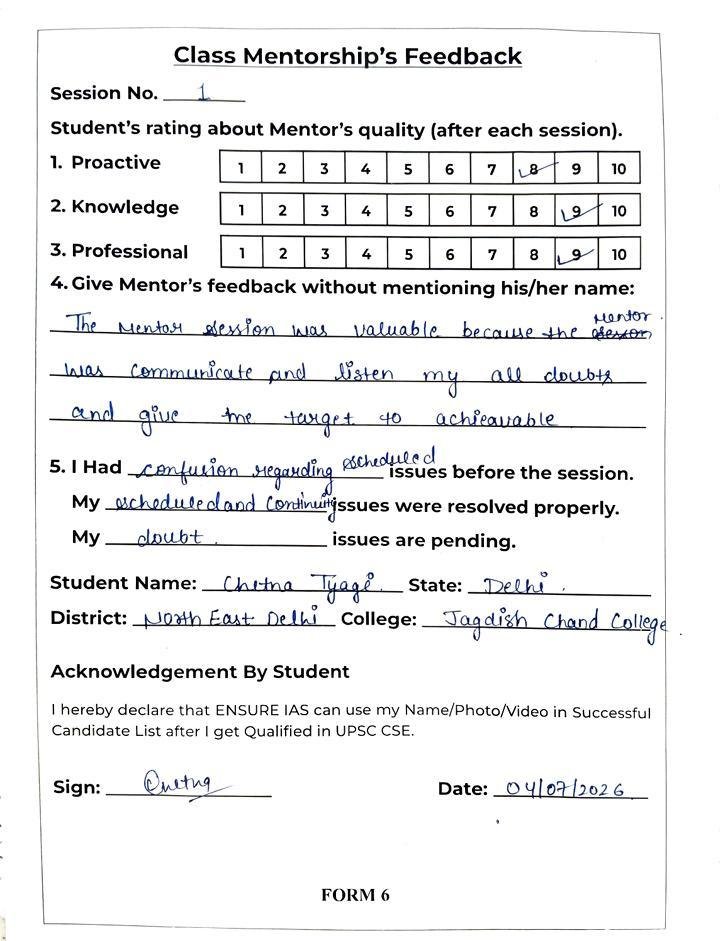 Class Mentorship's Feedback
Session No. 1
Student's rating about Mentor's quality (after each session).
1. Proactive 1 2 3 4 5 6 7 8 9 10
2. Knowledge 1 2 3 4 5 6 7 8 9 10
3. Professional 1 2 3 4 5 6 7 8 9 10
4. Give Mentor's feedback without mentioning his/her name:
The Mentor session was valuable because the Mentor
was communicate and listen my all doubts
and give me target to achieavable
5. I Had confusion regarding scheduled issues before the session.
My scheduled and continuity issues were resolved properly.
My doubt. issues are pending.
Student Name: Chetna Tyagi State: Delhi.
District: North East Delhi College: Jagdish Chand College
Acknowledgement By Student
I hereby declare that ENSURE IAS can use my Name/Photo/Video in Successful
Candidate List after I get Qualified in UPSC CSE.
Sign: Chetna Date: 04/07/2026
FORM 6